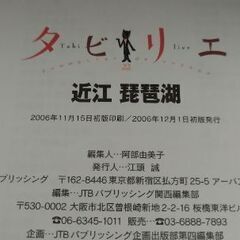 タビリエ
Tabi liue
近江 琵琶湖
2006年11月15日初版印刷／2006年12月1日初版発行
編集人…阿部由美子
発行人…江頭 誠
パブリッシング 〒162-8446 東京都新宿区払方町25-5 アーバン
編集…JTBパブリッシング関西編集部
〒530-0002 大阪市北区曽根崎新地2-2-16 桜橋東洋ビル
☎06-6345-1011 販売…☎03-6888-7893
企画…JTBパブリッシング企画出版部第四編集部